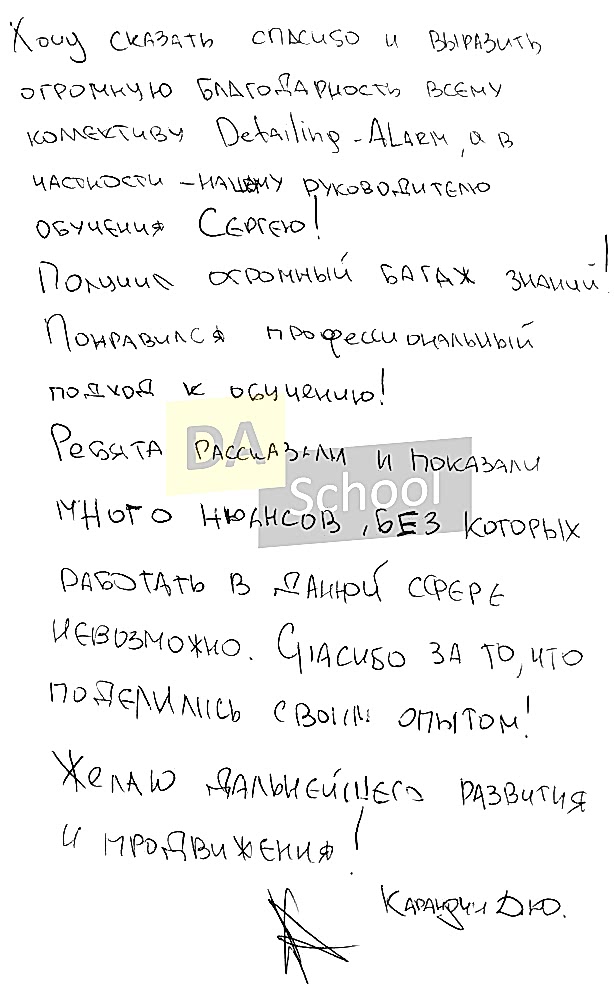 Хочу сказать спасибо и выразить
огромную благодарность всему
коллективу Detailing-Alarm, а в
частности - нашему руководителю
обучения Сергею!
Получил огромный багаж знаний!
Понравился профессиональный
подход к обучению!
Ребята рассказали и показали
много нюансов, без которых
DA School
работать в данной сфере
невозможно. Спасибо за то, что
поделились своим опытом!
Желаю дальнейшего развития
и продвижения!
Д.Ю.